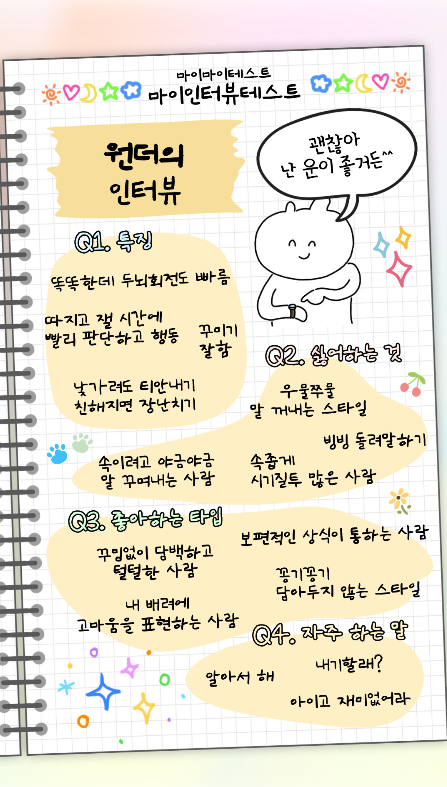 마이마이테스트
마이인터뷰테스트
원더의
인터뷰
괜찮아
난 운이 좋거든^^
Q1. 특징
똑똑한데 두뇌회전도 빠름
따지고 잴 시간에
빨리 판단하고 행동
꾸미기
잘함
낯가려도 티안내기
친해지면 장난치기
Q2. 싫어하는 것
우물쭈물
말 꺼내는 스타일
빙빙 돌려말하기
속이려고 야금야금
말 꾸며내는 사람
속좁게
시기질투 많은 사람
Q3. 좋아하는 타입
꾸밈없이 담백하고
털털한 사람
보편적인 상식이 통하는 사람
꽁기꽁기
담아두지 않는 스타일
내 배려에
고마움을 표현하는 사람
Q4. 자주 하는 말
알아서 해
내기할래?
아이고 재미없어라